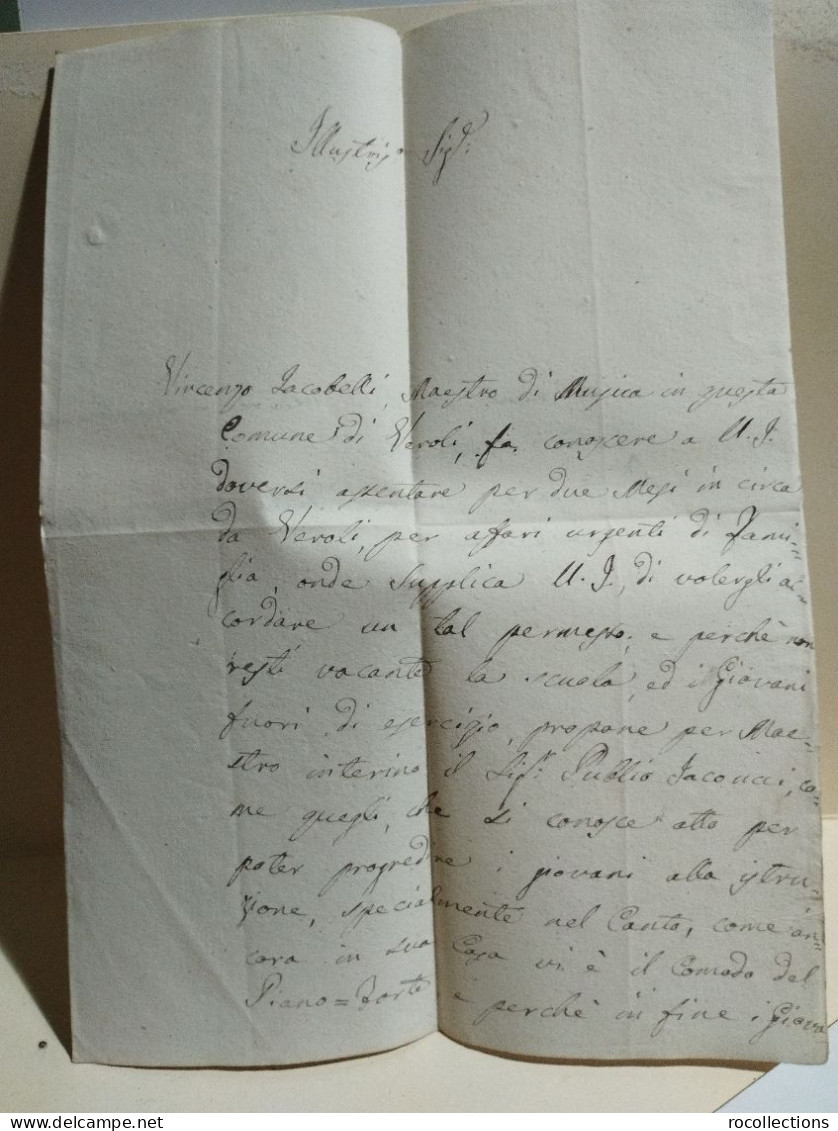 Illustris.mo Sig.re
Vincenzo Jacobelli, Maestro di Musica in questa
Comune di Veroli, fa conoscere a U. S.
doversi assentare per due Mesi in circa
da Veroli, per affari urgenti di Fami-
glia, onde supplica U. S. di volergli ac-
cordare un tal permesso; e perchè non
resti vacante la scuola, ed i Giovani
fuori di esercizio, propone per Mae-
stro interino il Sig.r Publio Jacoucci, co-
me quegli, che si conosce atto per
poter progredire i giovani alla istru-
zione, specialmente nel Canto, come an-
cora in sua Casa vi è il Comodo del
Piano=Forte, e perchè in fine i Giova
rocollections